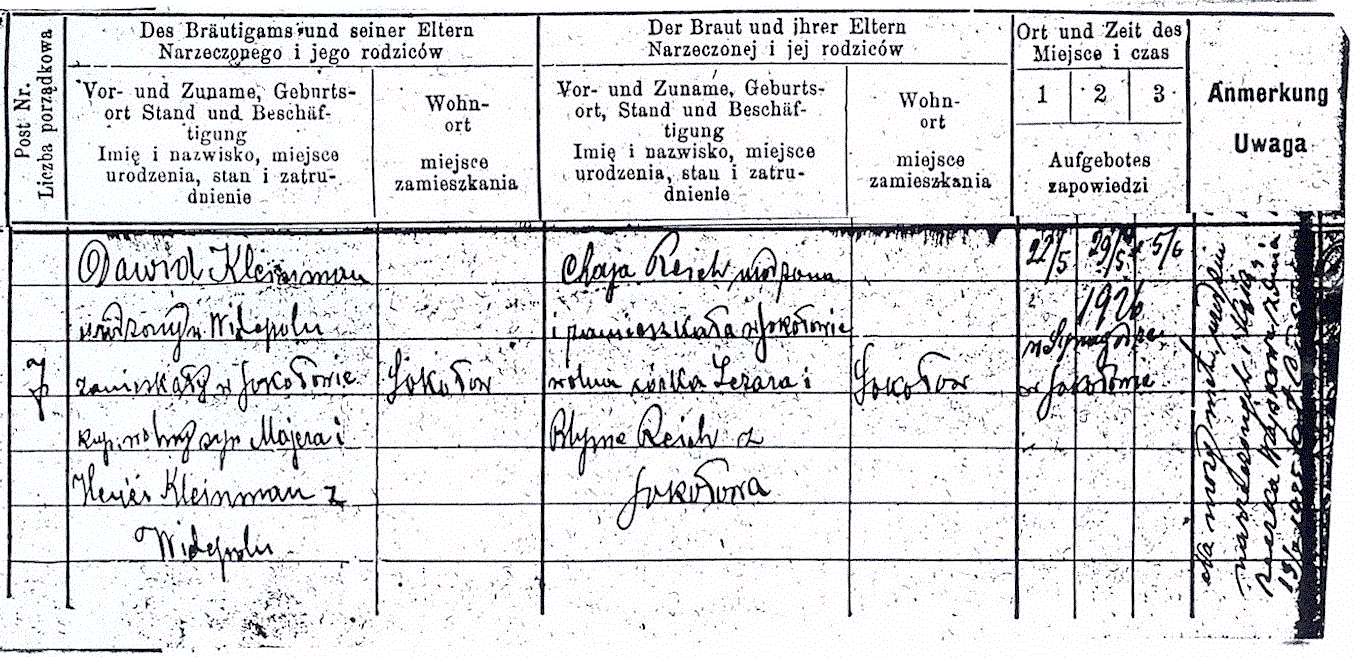 Post Nr.
Liczba porządkowa
Des Bräutigams und seiner Eltern
Narzeczonego i jego rodziców
Vor- und Zuname, Geburts-
ort Stand und Beschäf-
tigung
Imię i nazwisko, miejsce
urodzenia, stan i zatru-
dnienie
Wohn-
ort
miejsce
zamieszkania
Der Braut und ihrer Eltern
Narzeczonej i jej rodziców
Vor- und Zuname, Geburts-
ort, Stand und Beschäf-
tigung
Imię i nazwisko, miejsce
urodzenia, stan i zatru-
dnienie
Wohn-
ort
miejsce
zamieszkania
Ort und Zeit des
Miejsce i czas
1 2 3
Aufgebotes
zapowiedzi
Anmerkung
Uwaga
Dawid Kleinman
urodzony w Widepolu
zamieszkały w Sokołowie
kup. wolny syn Majera i
Kleinman z
Widepolu
Sokołow
Chaja Reich urodzona
i zamieszkała w Sokołowie
wolna córka Lezara i
Blyme Reich z
Sokołowa
Sokołow
22/5 29/5 5/6
1926
w Synagodze
w Sokołowie